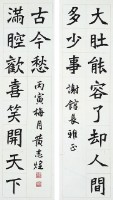 大肚能容了却人間
多少事
謝館長雅正
滿腔歡喜笑開天下
古今愁
丙寅梅月黃志煌